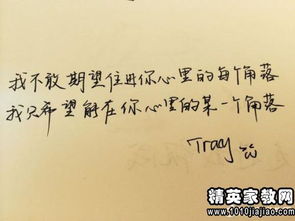 我不敢期望住进你心里的每个角落
我只希望能在你心里的某一个角落
Tracy
精英家教网
www.1010jiajiao.com